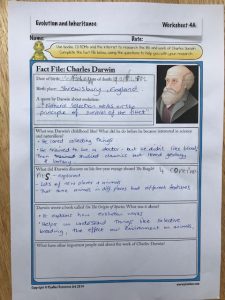 Evolution and Inheritance
Worksheet 4A
Name:
Date:
Use books, CD-ROMs and the internet to research the life and work of Charles Darwin.
Complete the fact file below, using the questions to help you with your research.
Fact File: Charles Darwin
Date of birth:
Date of death:
Birth place: Shrewsbury, England
A quote by Darwin about evolution:
Natural selection
principle of survival of the fittest
What was Darwin's childhood like? What did he do before he became interested in science
and naturalism?
He loved collecting things
He trained to be a doctor - but he didn't like blood!
Then studied and loved geology
& botany
What did Darwin discover on his five year voyage aboard The Beagle?
explored
Lots of new plants & animals
that some animals in diff places had different features
Darwin wrote a book called On The Origin of Species. What was it about?
It explains how evolution works
Helps us understand things like selective
breeding, the effect our environment on animals
What have other important people said about the work of Charles Darwin?